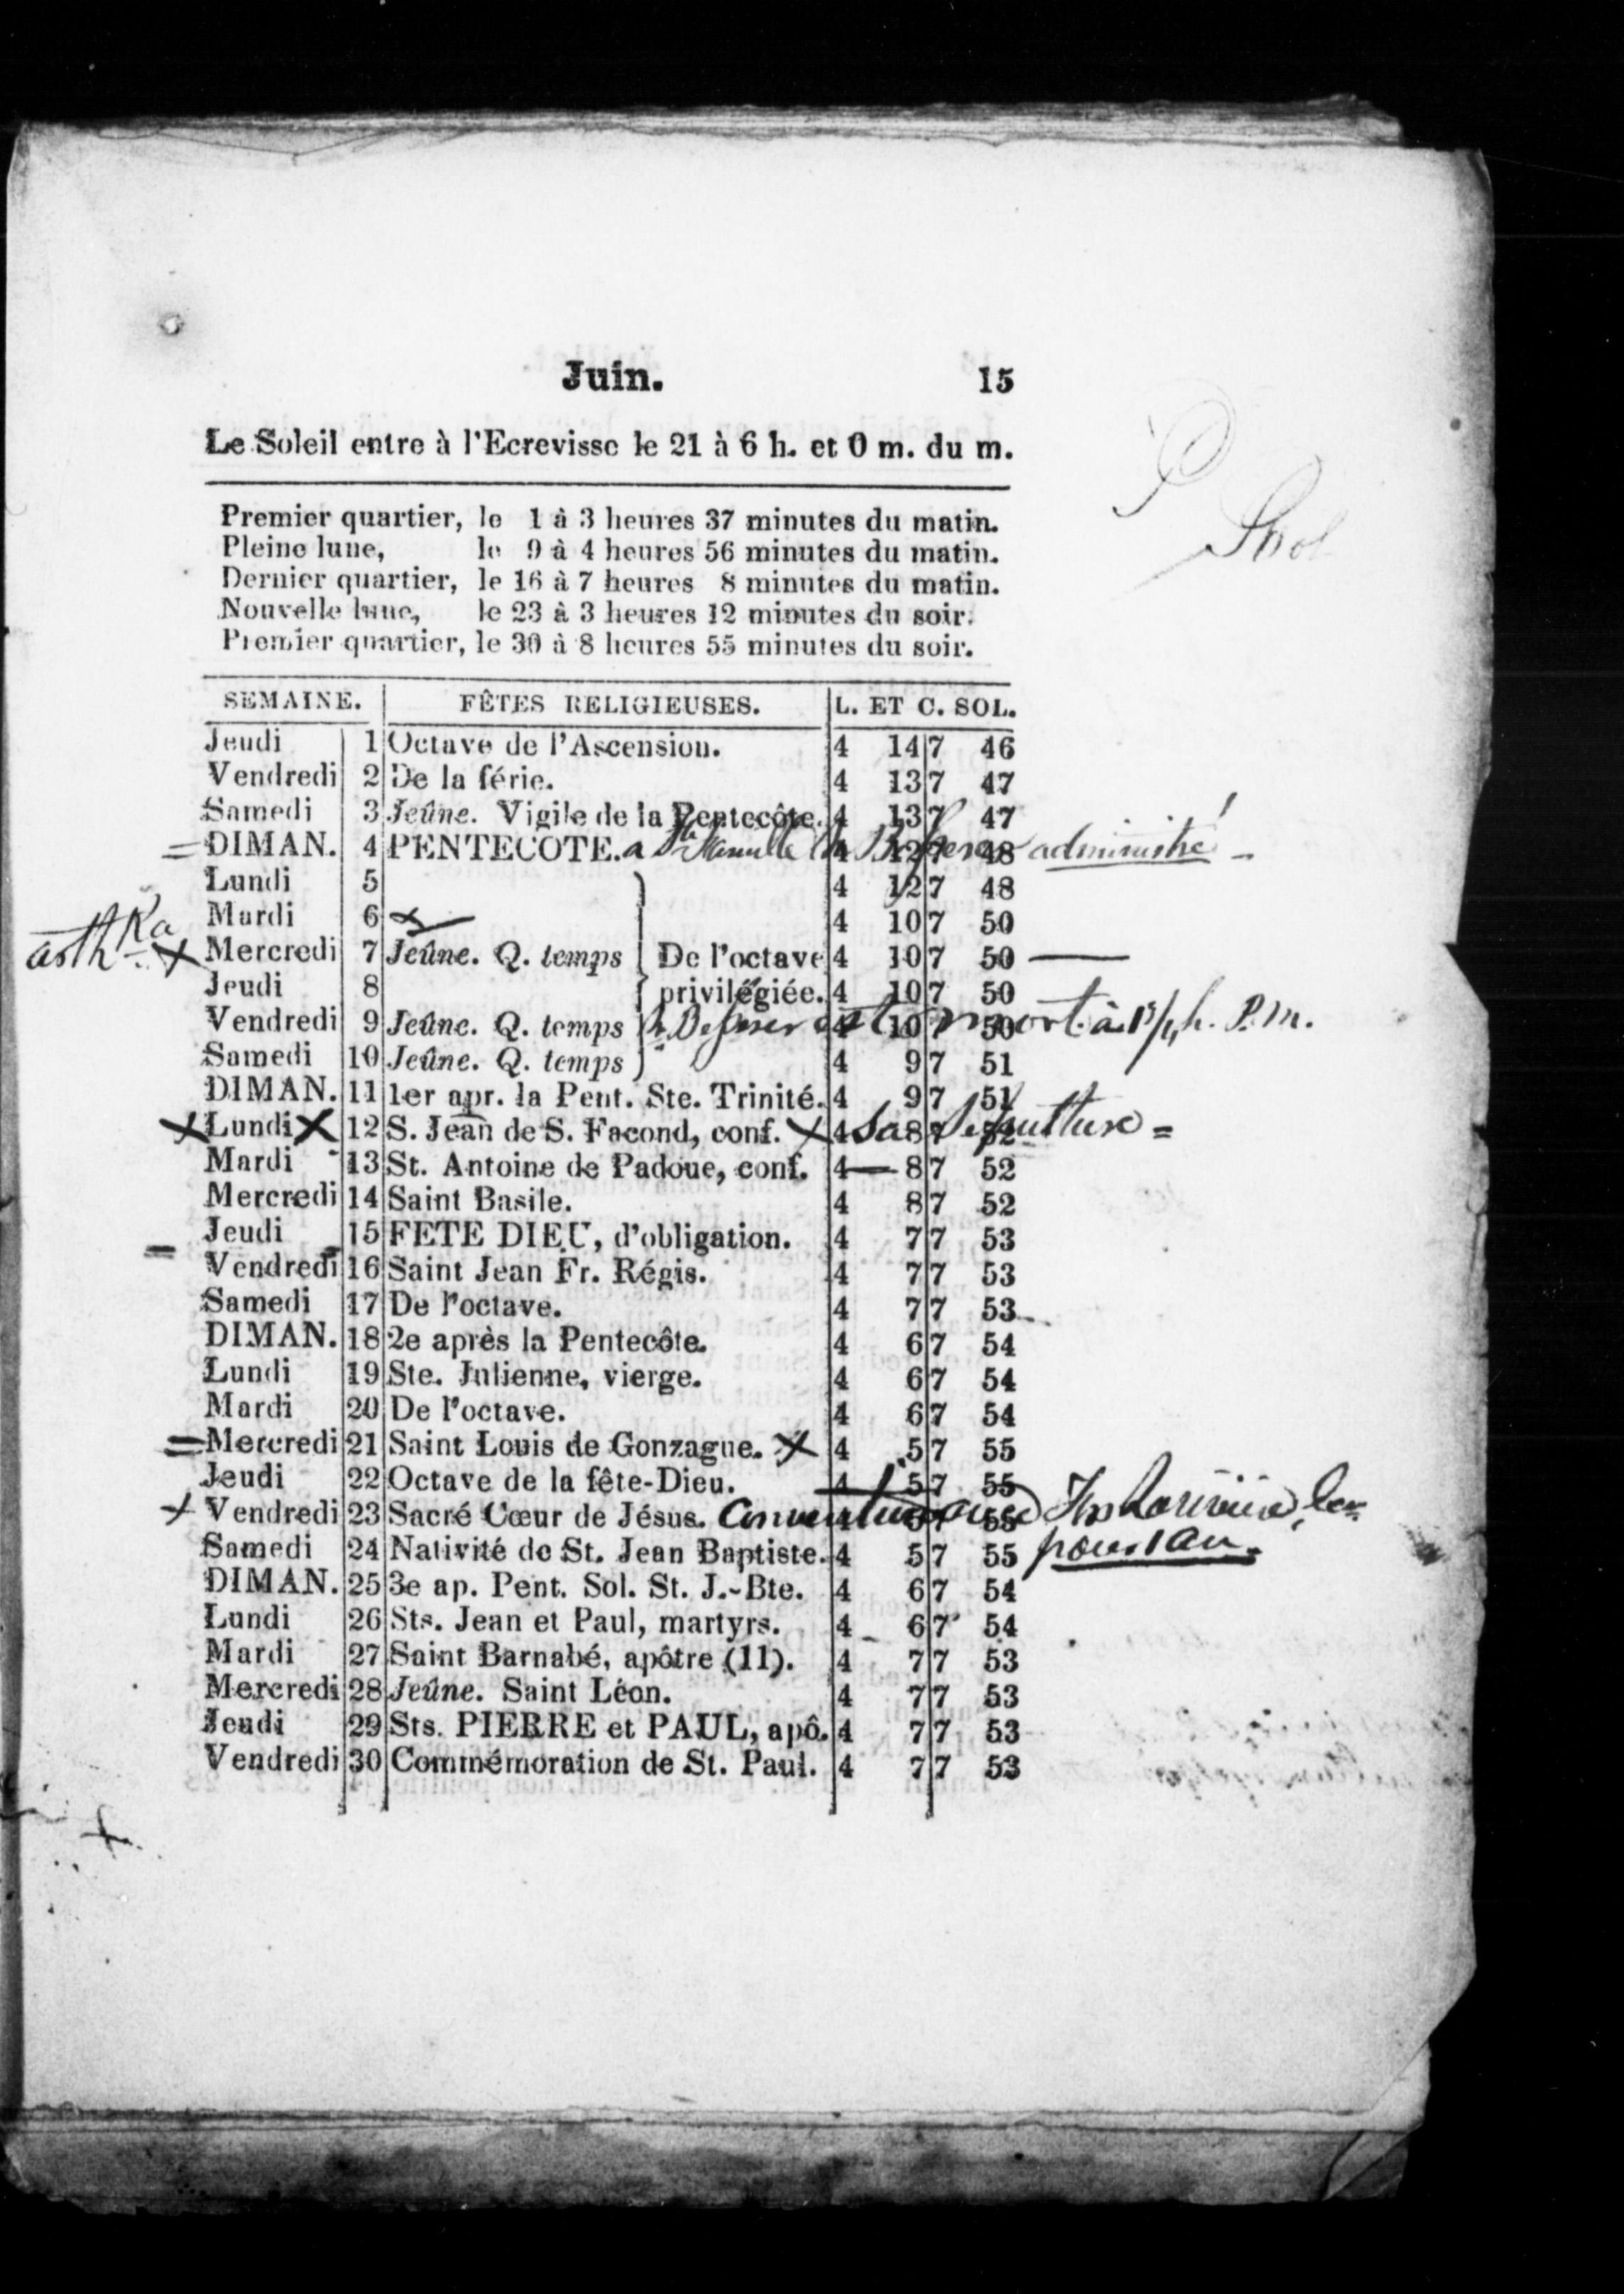 Juin. 15
Le Soleil entre à l'Ecrevisse le 21 à 6 h. et 0 m. du m.
Premier quartier, le 1 à 3 heures 37 minutes du matin.
Pleine lune, le 9 à 4 heures 56 minutes du matin.
Dernier quartier, le 16 à 7 heures 8 minutes du matin.
Nouvelle lune, le 23 à 3 heures 12 minutes du soir.
Premier quartier, le 30 à 8 heures 55 minutes du soir.
SEMAINE. FÊTES RELIGIEUSES. L. ET C. SOL.
Jeudi 1 Octave de l'Ascension. 4 14 7 46
Vendredi 2 De la férie. 4 13 7 47
Samedi 3 Jeûne. Vigile de la Pentecôte. 4 13 7 47
= DIMAN. 4 PENTECOTE. a 4 12 7 48 administré
Lundi 5 4 12 7 48
Mardi 6 4 10 7 50
x Mercredi 7 Jeûne. Q. temps De l'octave 4 10 7 50
Jeudi 8 privilégiée. 4 10 7 50
Vendredi 9 Jeûne. Q. temps est mort à 4 10 7 50 h. P. M.
Samedi 10 Jeûne. Q. temps 4 9 7 51
DIMAN. 11 1er apr. la Pent. Ste. Trinité. 4 9 7 51
x Lundi x 12 S. Jean de S. Facond, conf. x 4 8 7 52 Sa Sepulture =
Mardi 13 St. Antoine de Padoue, conf. 4 8 7 52
Mercredi 14 Saint Basile. 4 8 7 52
Jeudi 15 FETE DIEU, d'obligation. 4 7 7 53
Vendredi 16 Saint Jean Fr. Régis. 4 7 7 53
Samedi 17 De l'octave. 4 7 7 53
DIMAN. 18 2e après la Pentecôte. 4 6 7 54
Lundi 19 Ste. Julienne, vierge. 4 6 7 54
Mardi 20 De l'octave. 4 6 7 54
= Mercredi 21 Saint Louis de Gonzague. x 4 5 7 55
Jeudi 22 Octave de la fête-Dieu. 4 5 7 55
+ Vendredi 23 Sacré Cœur de Jésus. 4 5 7 55
Samedi 24 Nativité de St. Jean Baptiste. 4 5 7 55 pour 1 an.
DIMAN. 25 3e ap. Pent. Sol. St. J.-Bte. 4 6 7 54
Lundi 26 Sts. Jean et Paul, martyrs. 4 6 7 54
Mardi 27 Saint Barnabé, apôtre (11). 4 7 7 53
Mercredi 28 Jeûne. Saint Léon. 4 7 7 53
Jeudi 29 Sts. PIERRE et PAUL, apô. 4 7 7 53
Vendredi 30 Commémoration de St. Paul. 4 7 7 53